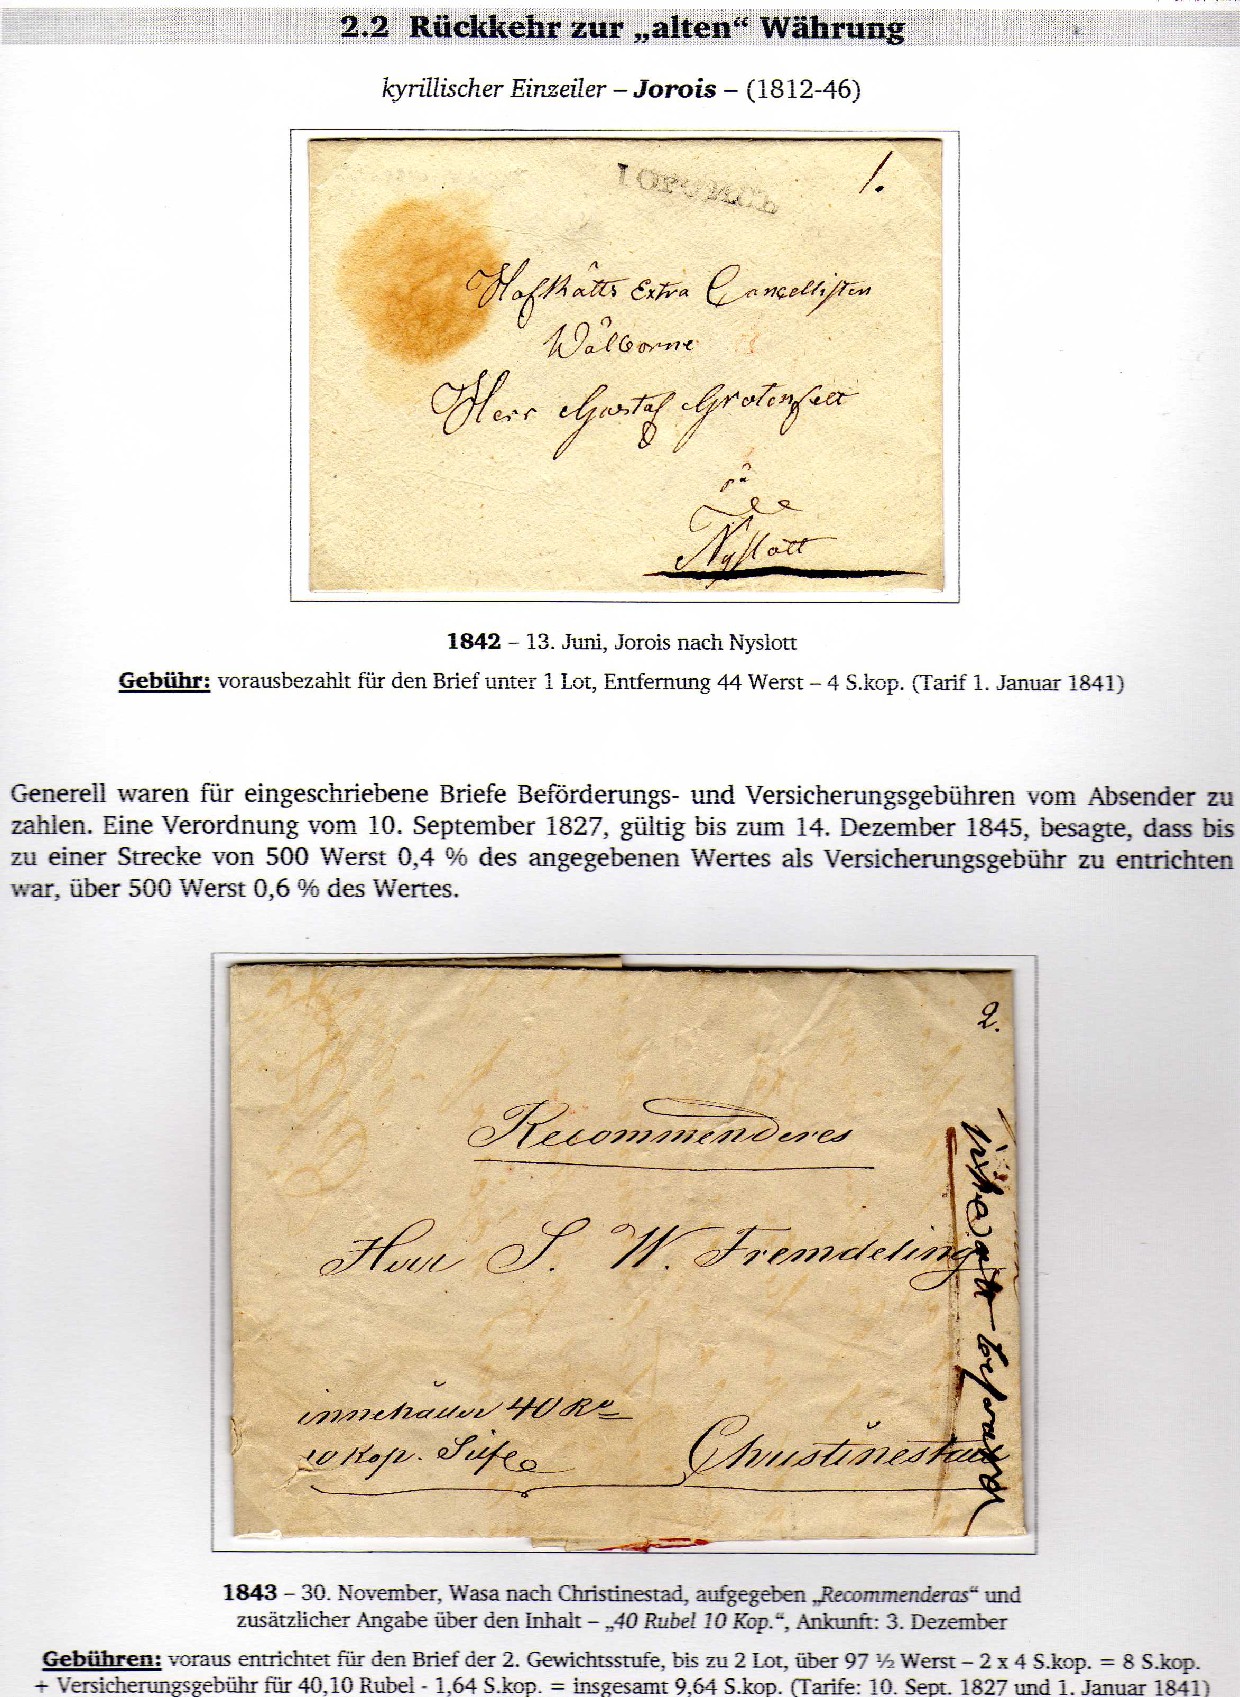 2.2 Rückkehr zur „alten“ Währung
kyrillischer Einzeiler – Jorois – (1812-46)
1.
ІОРОИСЪ
HofRätts Extra Cancellisten
Wälborne
Herr Gustaf Grotenfelt
på
Nyslott
1842 – 13. Juni, Jorois nach Nyslott
Gebühr: vorausbezahlt für den Brief unter 1 Lot, Entfernung 44 Werst – 4 S.kop. (Tarif 1. Januar 1841)
Generell waren für eingeschriebene Briefe Beförderungs- und Versicherungsgebühren vom Absender zu
zahlen. Eine Verordnung vom 10. September 1827, gültig bis zum 14. Dezember 1845, besagte, dass bis
zu einer Strecke von 500 Werst 0,4 % des angegebenen Wertes als Versicherungsgebühr zu entrichten
war, über 500 Werst 0,6 % des Wertes.
2.
Recommenderes
Herr S. W. Fremdeling
innehåller 40 Ro
10 Kop. Silfe
Christinestad
1843 – 30. November, Wasa nach Christinestad, aufgegeben „Recommenderas“ und
zusätzlicher Angabe über den Inhalt – „40 Rubel 10 Kop.“, Ankunft: 3. Dezember
Gebühren: voraus entrichtet für den Brief der 2. Gewichtsstufe, bis zu 2 Lot, über 97 ½ Werst – 2 x 4 S.kop. = 8 S.kop.
+ Versicherungsgebühr für 40,10 Rubel - 1,64 S.kop. = insgesamt 9,64 S.kop. (Tarife: 10. Sept. 1827 und 1. Januar 1841)